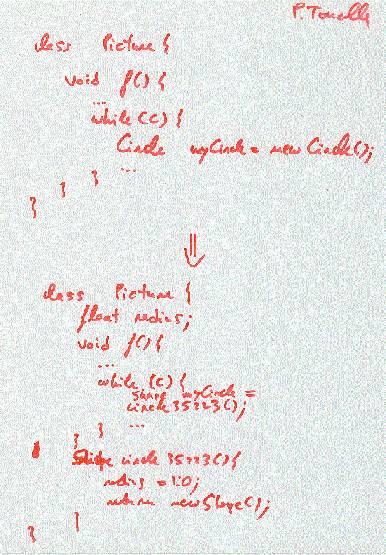 P. Tonella
class Picture {
void f() {
...
while (c) {
Circle myCircle = new Circle();
...
}
}
}
⇓
class Picture {
float radius;
void f() {
...
while (c) {
Shape myCircle =
circle35223();
...
}
}
Shape circle35223() {
radius = 1.0;
return new Shape();
}
}